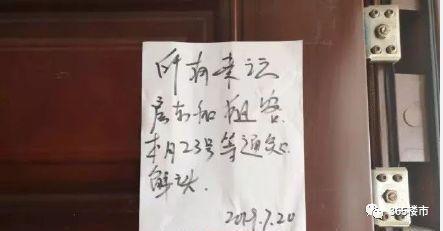 所有来访
房东和租客
本月23号等通知
解决.
2019.7.20
365楼市